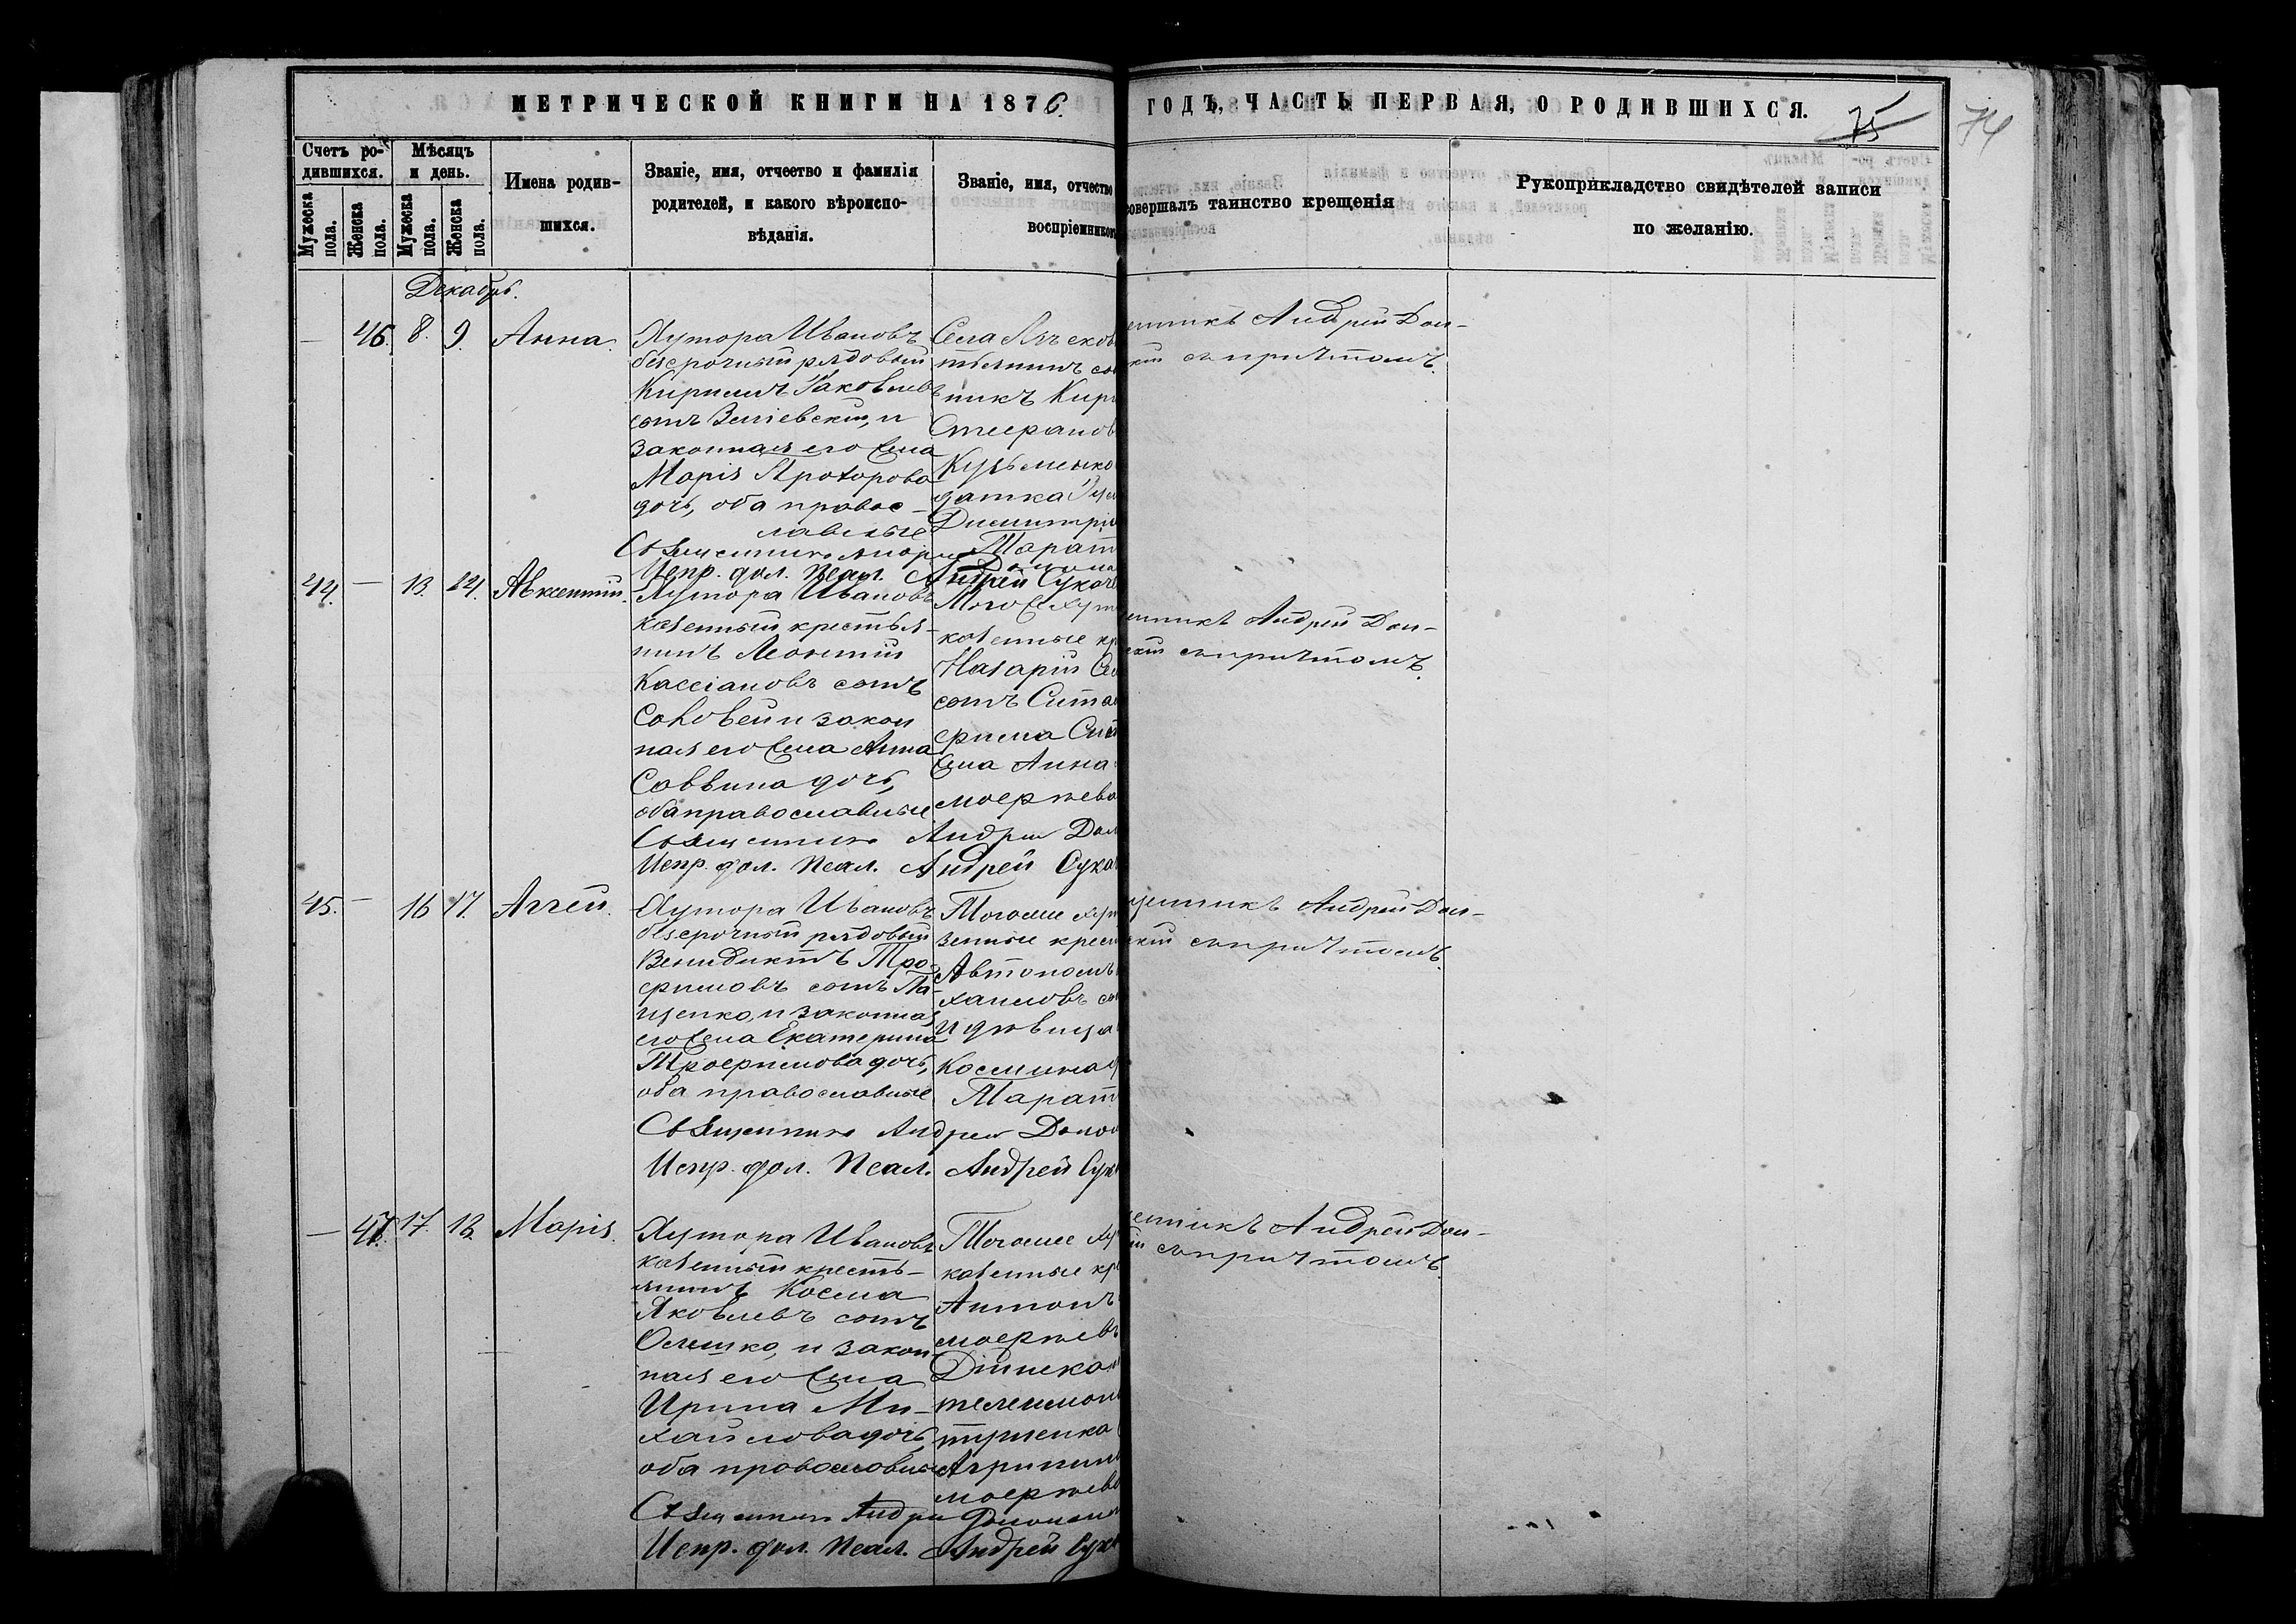 МЕТРИЧЕСКОЙ КНИГИ НА 1876. ГОДЪ, ЧАСТЬ ПЕРВАЯ, О РОДИВШИХСЯ.
75
74
Счетъ ро-
дившихся.
Мужеска
пола.
Женска
пола.
Мѣсяцъ
и день.
Мужеска
пола.
Женска
пола.
Имена родив-
шихся.
Званіе, имя, отчество и фамилія
родителей, и какого вѣроиспо-
вѣданія.
Званіе, имя, отчество
воспріемников
совершалъ таинство крещенія
Рукоприкладство свидѣтелей записи
по желанію.
Декабрь.
— 46. 8. 9. Анна.
Хутора Ивановъ
безсрочный рядовый
Кириллъ Яковлевъ
сынъ и
законная его жена
Марія Прохорова
дочь, оба правос-
лавные
Села
пикъ Кир
Кузьменко
Димитрі
Тарат
енникъ Андрей Дол-
скій съ причтомъ.
Священникъ Андрей
Испр. дол. Псал. Андрей Сухо
44. — 13. 14. Авксентій.
Хутора Ивановъ
казенный крестья-
нинъ Леонтій
Кассіановъ сынъ
Соловей и закон
ная его жена Анна
Саввина дочь,
оба православные
Того же хут
казенные кр
Назарій
сынъ Сита
жена Анна
моѳеева
енникъ Андрей Дол-
скій съ причтомъ.
Священникъ Андрей Дол
Испр. дол. Псал. Андрей Суха
45. — 16 17. Аггей.
Хутора Ивановъ
безсрочный рядовый
Венидиктъ Тро-
фимовъ сынъ Па-
щенко, и законная
его жена Екатерина
Трофимова дочь,
оба православные
Того же хут
зенные крест
Автономъ
хаиловъ сы
и дѣвица
Космина д
Тарат
щенникъ Андрей Дол-
скій съ причтомъ.
Священникъ Андрей
Испр. дол. Псал. Андрей Сух
— 47. 17. 18. Марія.
Хутора Ивановъ
казенный кресть-
янинъ Косма
Яковлевъ сынъ
Олешко, и закон-
ная его жена
Ирина Ми-
хайлова дочь,
оба православные
Того же ху
казенные кр
Антонъ
моѳеевъ
телеимон
Агрипин
моѳеева
енникъ Андрей Дол-
ій съ причтомъ.
Священникъ Андрей
Испр. дол. Псал. Андрей Сух